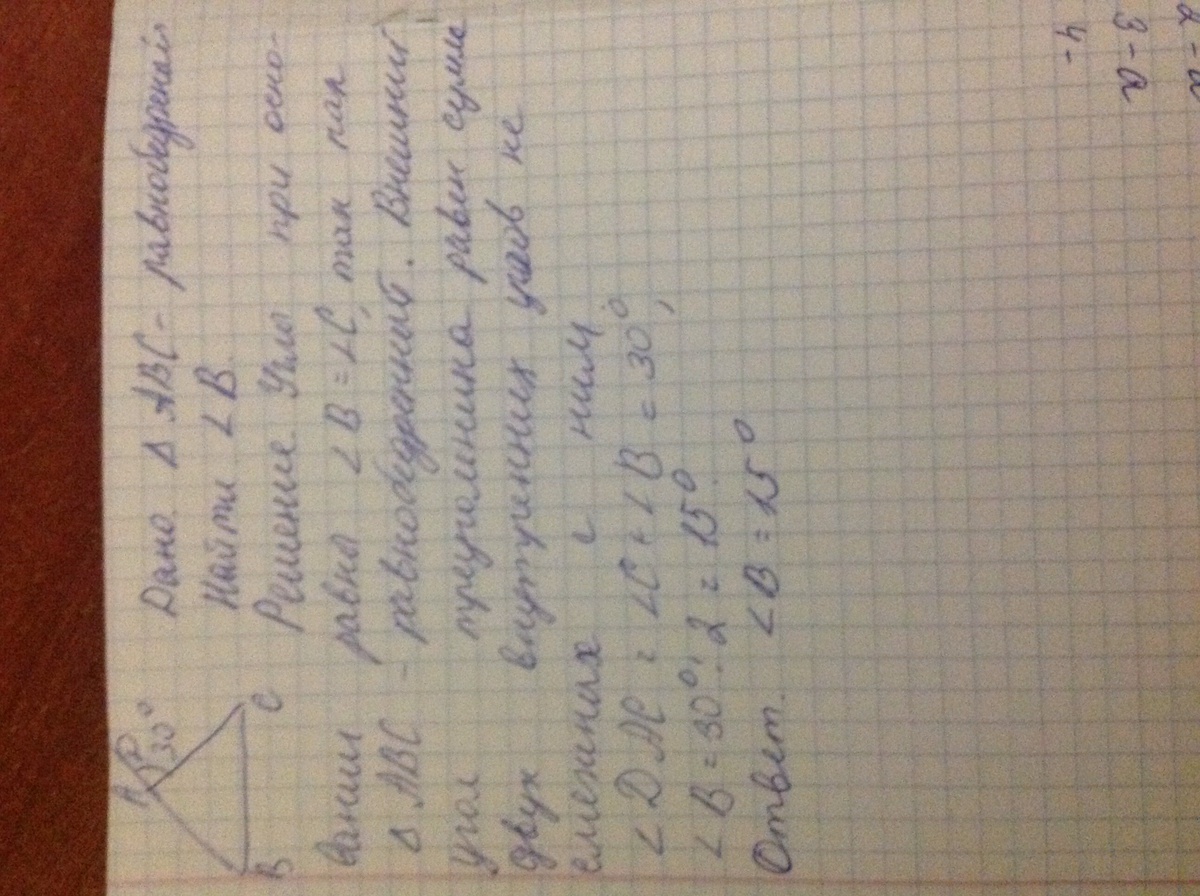 A D
30°
B C
Дано Δ ABC - равнобедренный
Найти ∠B
Решение Углы при осно-
вании равны ∠B = ∠C, так как
Δ ABC - равнобедренный. Внешний
угол треугольника равен сумме
двух внутренних углов не
смежных с ним
∠DAC = ∠C + ∠B = 30°,
∠B = 30° : 2 = 15°.
Ответ. ∠B = 15°
2 - а
3 - а
4 -